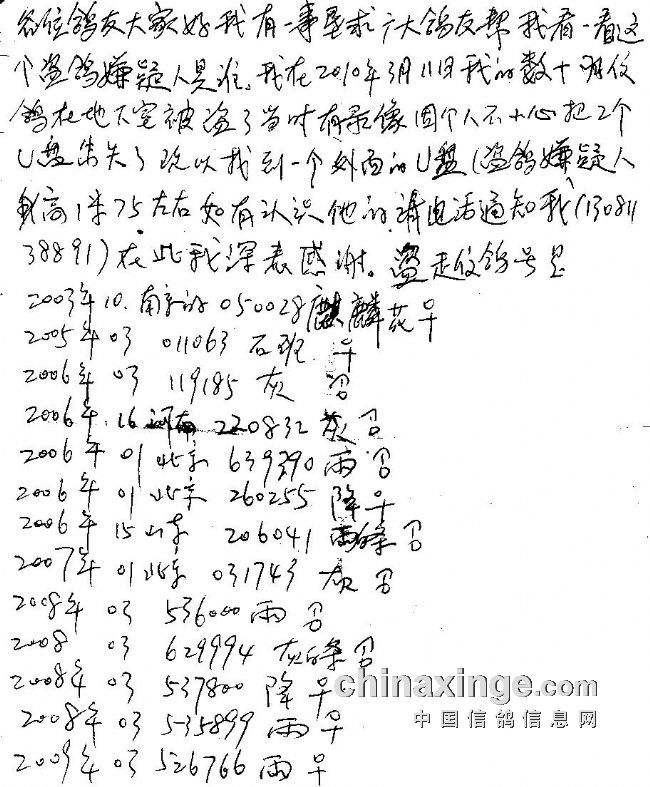 各位鸽友大家好我有一事垦求广大鸽友帮我看一看这
个盗鸽嫌疑人是谁。我在2010年3月11日我的数十班位
鸽在地下室被盗了当时有录像因个人不小心把2个
U盘丢失了现以找到一个外面的U盘(盗鸽嫌疑人
身高1米75左右如有认识他的请电话通知我(130811
38891)在此我深表感谢。盗走位鸽号是
2003年10.南京的050028麒麟花早
2005年03 011063 石班 早
2006年03 119185 灰 否
2006年.16河南 220832 灰 否
2006年01北京 639390 雨 否
2006年01北京 260255 降 早
2006年15山东 206041 雨条 否
2007年01北京 031743 灰 否
2008年03 536000 雨 否
2008 03 629994 灰白条 否
2008年03 537800 降 早
2008年03 535899 雨 早
2009年03 526766 雨 早
chinaxinge.com
中国信鸽信息网